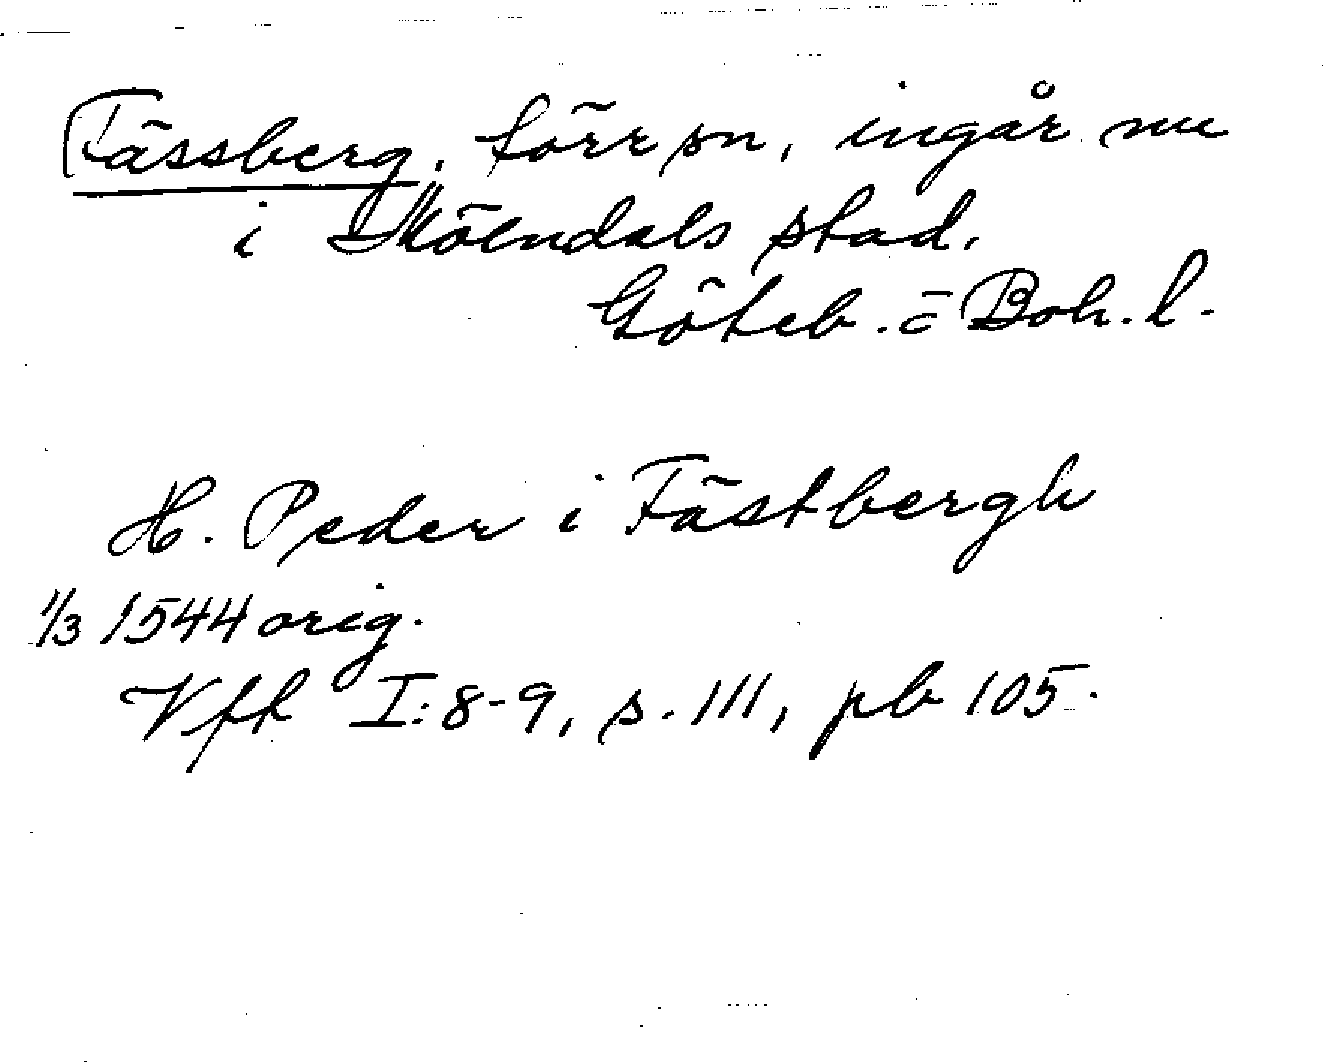 Fässberg, förr sn, ingår nu
i Mölndals stad.
Göteb. o Boh. l.
H. Peder i Fästbergh
1/3 1544 orig.
Vff I:8-9, s. 111, pb 105.